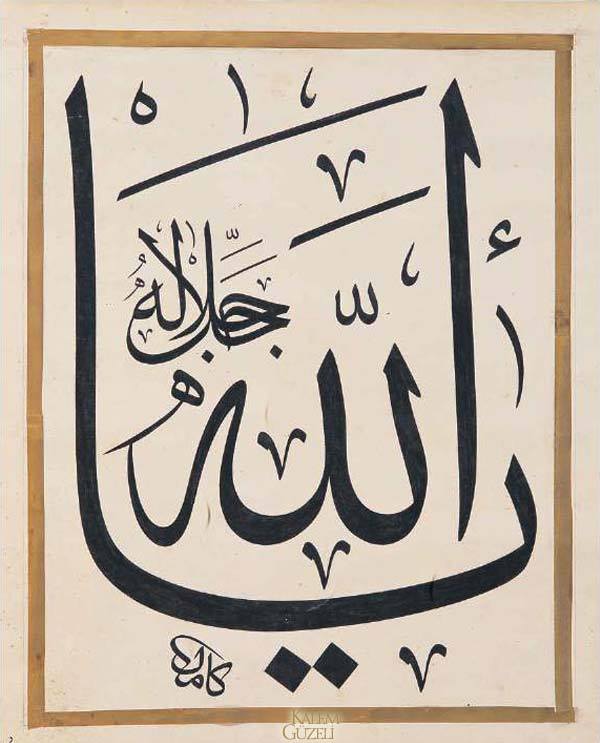 يا الله
جل جلاله
كامل
KALEM
GÜZELİ